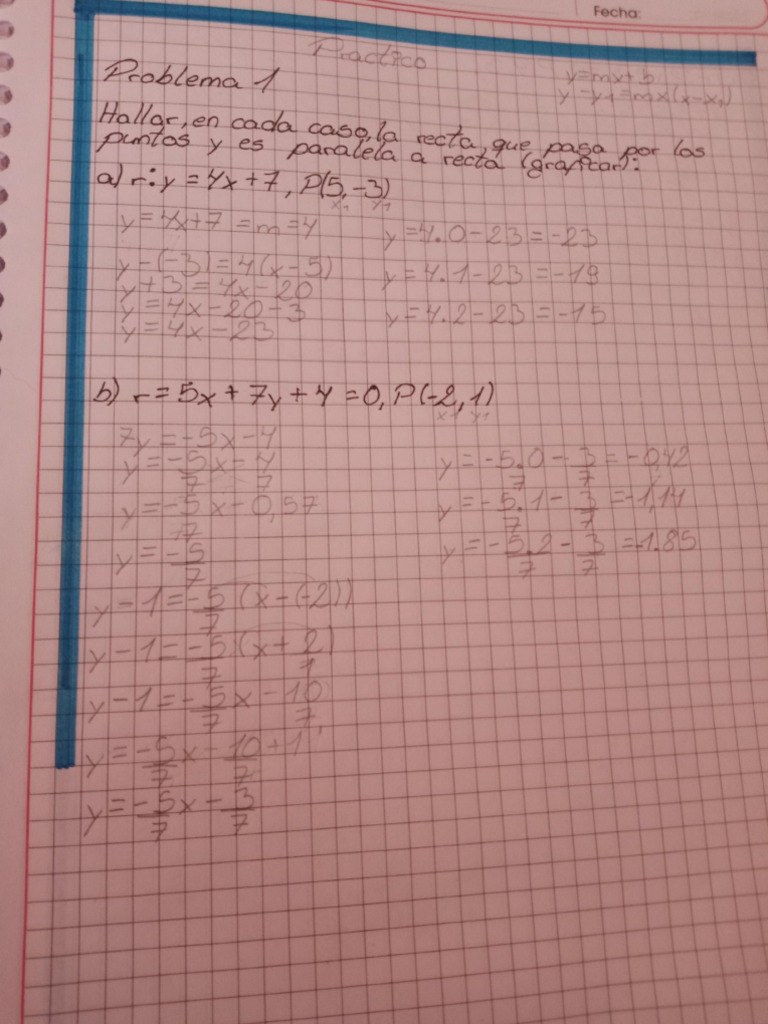 Fecha:
Practico
y=mx+b
y-y1=mx(x-x1)
Problema 1
Hallar, en cada caso, la recta, que pasa por los
puntos y es paralela a recta (graficar):
a) r: y = 4x+7, P(5,-3)
x1 y1
y=4x+7 =m=4
y-(-3)=4(x-5)
y+3=4x-20
y=4x-20-3
y=4x-23
y=4.0-23=-23
y=4.1-23=-19
y=4.2-23=-15
b) r=5x+7y+4=0, P(-2,1)
x1 y1
7y=-5x-4
y=-5/7x-4/7
y=-5/7x-0,57
y=-5/7
y-1=-5/7(x-(-2))
y-1=-5/7(x+2/1)
y-1=-5/7x-10/7
y=-5/7x-10/7+1
y=-5/7x-3/7
y=-5/7.0-3/7=-0,42
y=-5/7.1-3/7=-1,14
y=-5/7.2-3/7=-1.85